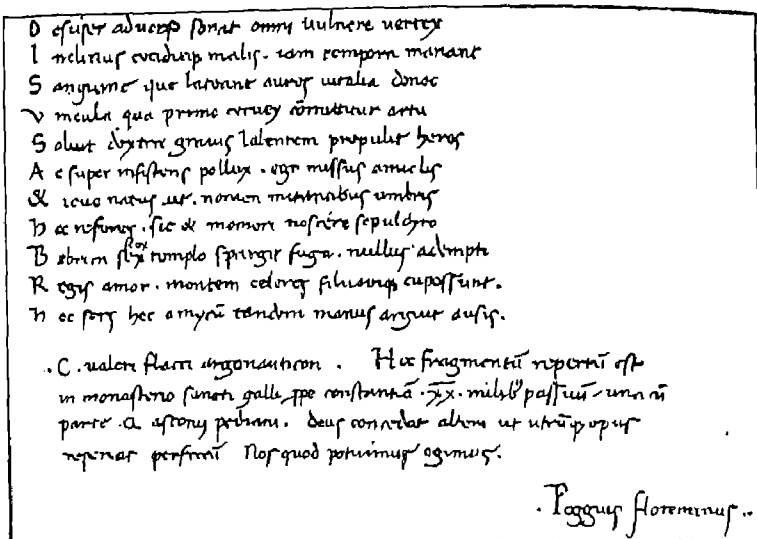 D esuper aduerso sonat omni uulnere uertex
I nclinus cediturq malis. iam tempora manant
S anguine que latuant aures uitalia donec
V incula qua primo ceruix cōmittitur artu
S oluit dextra grauis labentem propulit heros
A c super insistens pollux. ego missus amiclis
& ioue natus ait. nomen mirantibus umbris
h oc referes. sic & memori noscere sepulchro
B ebricas extemplo spargit fuga. nullus adempti
R egis amor. montem celeres siluamq capessunt.
h ec sors hec amycū tandem manus arguit ausis.
. C. ualeri flacci argonauticon. Hoc fragmentū repertū est
in monasterio sancti galli ppe constantiā. XX. milib passuū. una cū
parte. Q. asconii pediani. deus concedat alteri ut utrūq opus
reperiat perfectū Nos quod potuimus egimus.
. Poggius florentinus..